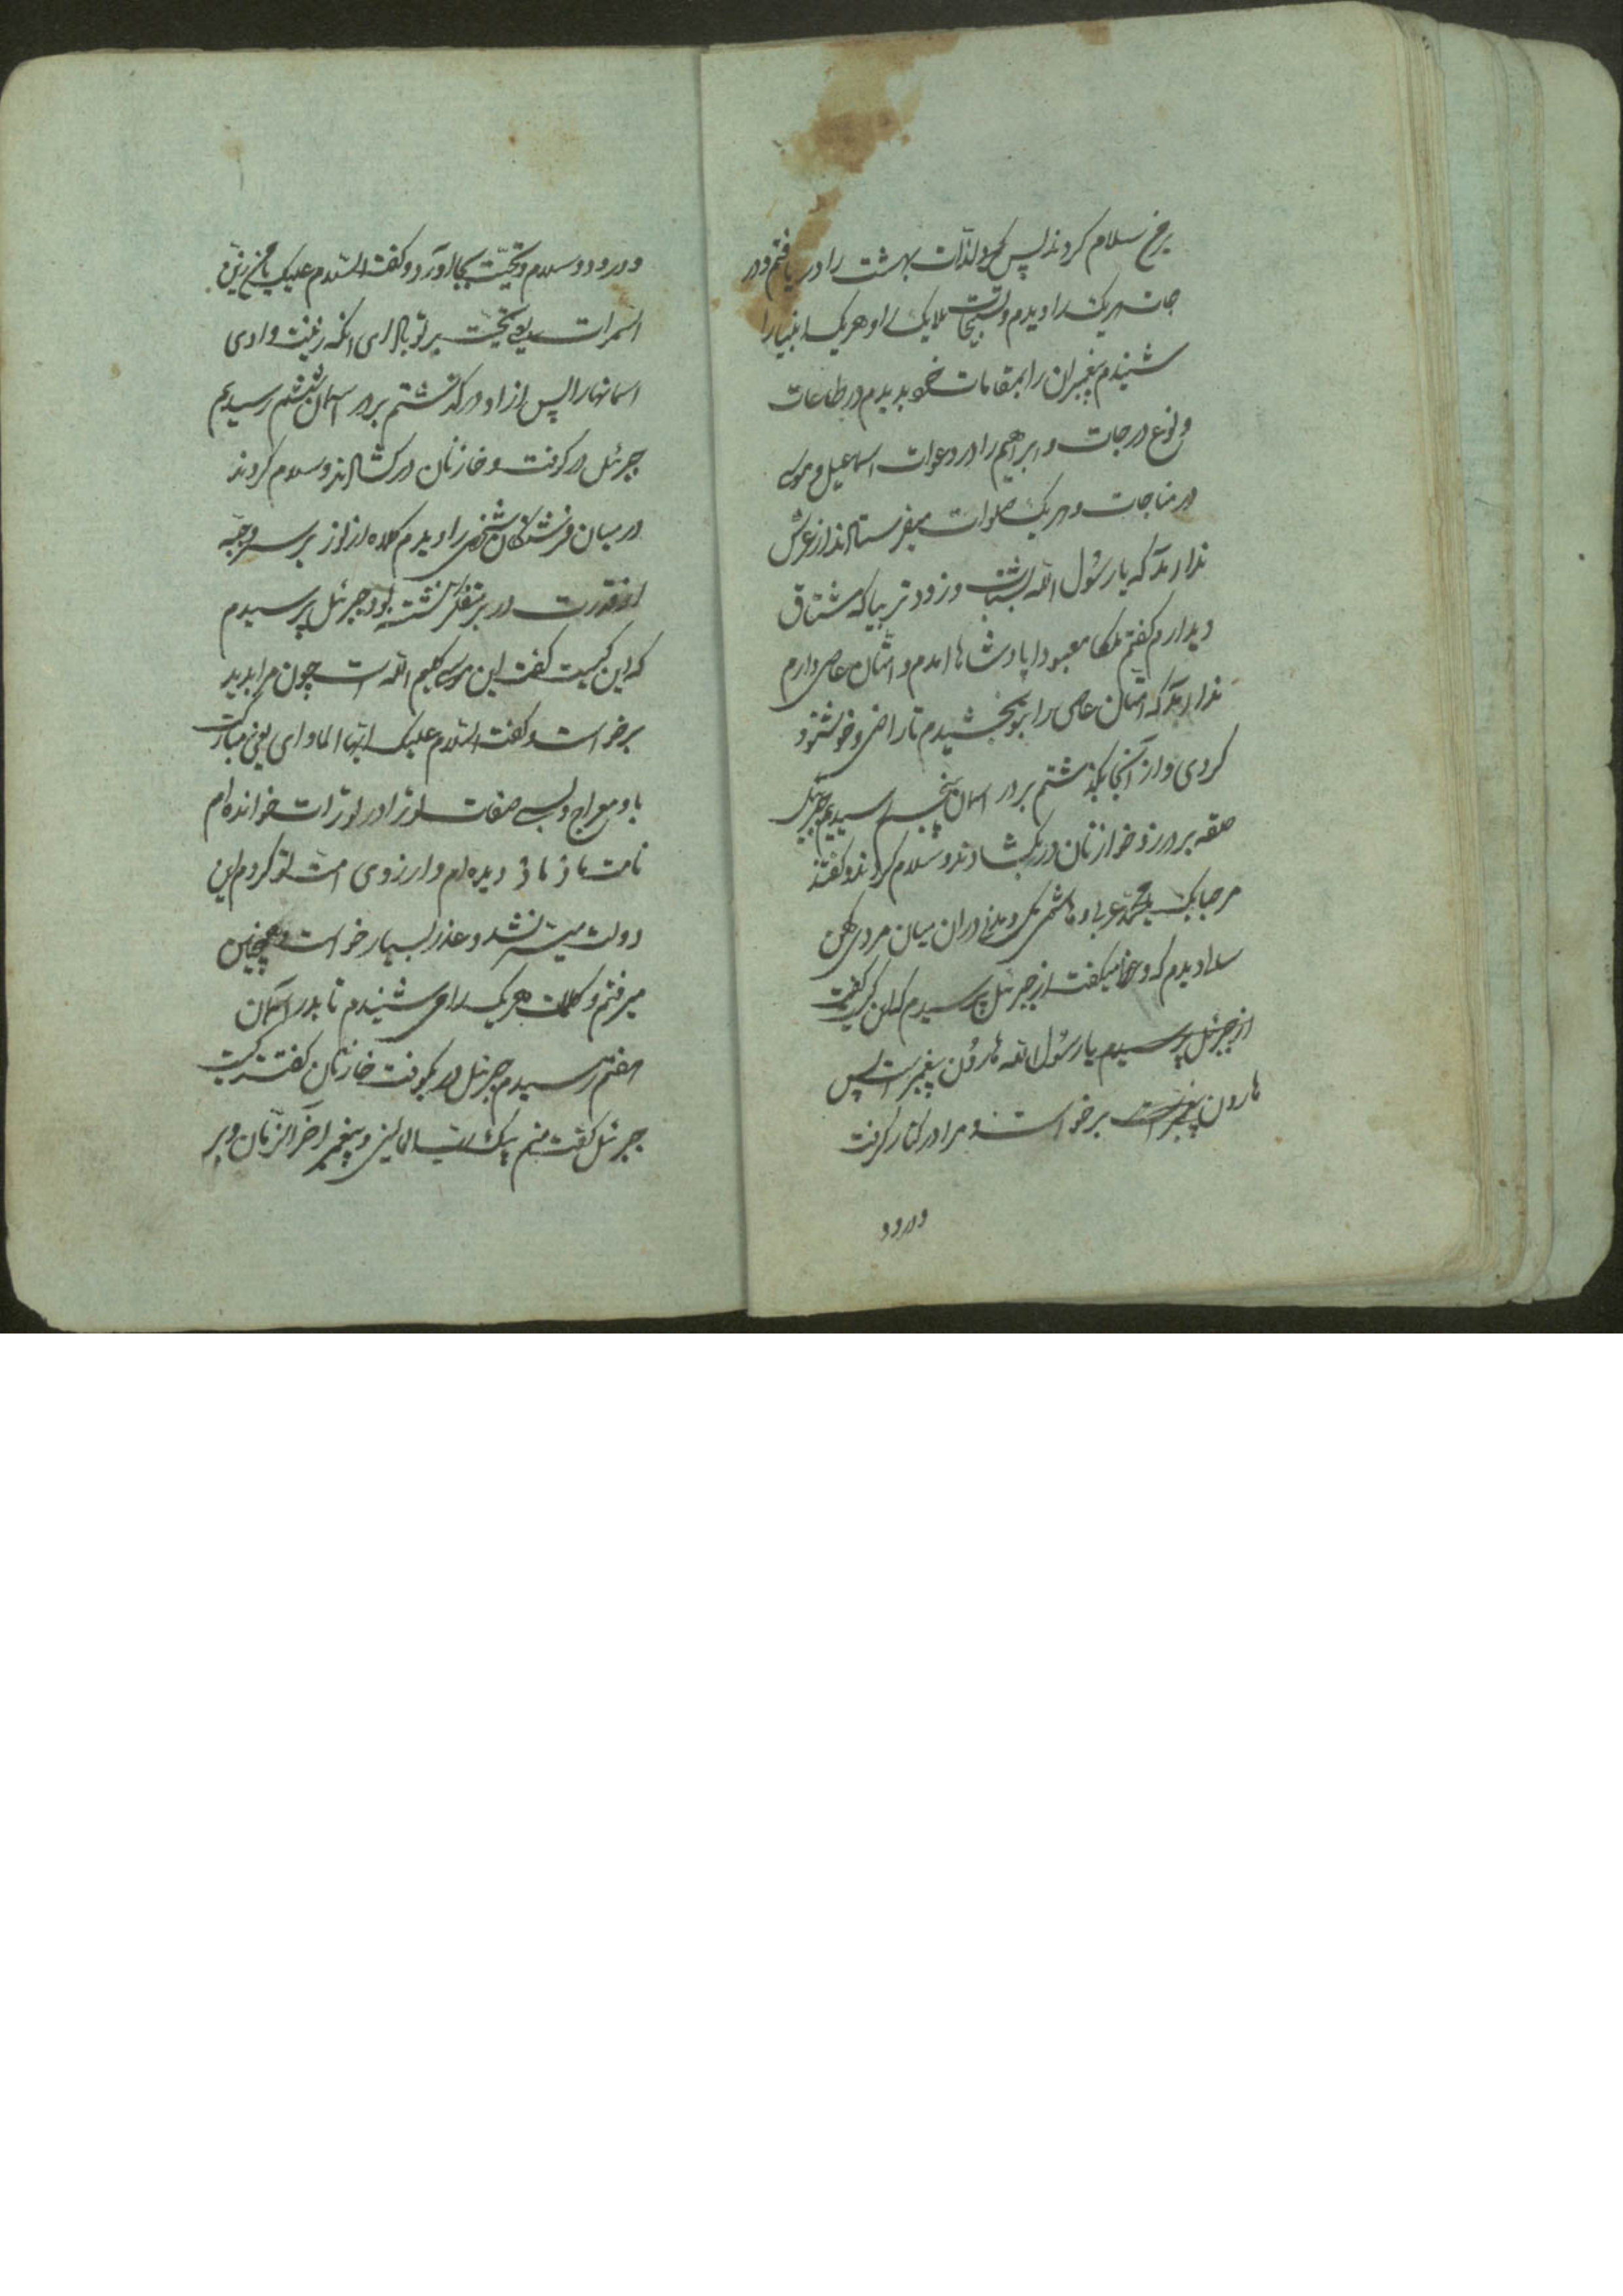 برخ سلام کردند پس لذات بهشت را دریافتم و در
هریک را دیدم و تسبیحات ملایک را و هریک انبیا را
شنیدم پیغمبران را بمقامات خود بدیدم در طاعات
و نوع درجات و ابرهیم را در دعوات اسماعیل و موسی
در مناجات و هریک صلوات میفرستادند از عرش
ندا امد که یا رسول الله بشتاب و زودتر بیا که مشتاق
دیدارم گفتم ملکا معبودا پادشاها امدم و امتان عاصی دارم
ندا امد که امتان عاصی را بتو بخشیدم تا راضی و خوشنود
کردی و از آنجا بکذشتم بر در اسمان پنجم رسیدیم جبرئیل
حلقه بر در زد خوازنان در بکشادند و سلام کردند و کفتند
مرحبا بک یا محمد عربی و هاشمی مکی و مدنی در ان میان مردی کهن
دیدم که میکفت از جبرئل پرسیدم که این کیست کفت
از جبرئل پرسیدم یا رسول الله هارون پیغمبر است پس
هارون پیغمبر است برخواست و مرا در کنار کرفت
و درود
و درود و سلام و تحیّت بجا اورد و کفت السّلام علیک یا من زین
السموات یعنی تحیّت بر تو باد ای انکه زینت دادی
اسمانها را پس از او در کذشتم بر در اسمان ششم رسیدیم
جبرئل در کوفت و خازنان در کشادند و سلام کردند
در میان فرشتکان شخصی را دیدم کلاه از نور بر سر و جبّه
از قدرت در بر متفکر نشسته بود جبرئل پرسیدم
که این کیست کفت این موسی کلیم الله است چون مرا بدید
برخواست و کفت السّلام علیک ایها یعنی مبارکت
باد معراج و بسی صفات تو را در تورات خوانده ام
نامت دیده ام و ارزوی امّت تو کردم این
دولت میسّر نشد و عذر بسیار خواست و همچنین
میرفتم و کلمات هریک را می شنیدم تا بدر اسمان
هفتم رسیدم جبرئل در بکوفت خازنان کفتند کیست
جبرئل کفت منم پیک و پیغمبر اخر الزّمان و بر